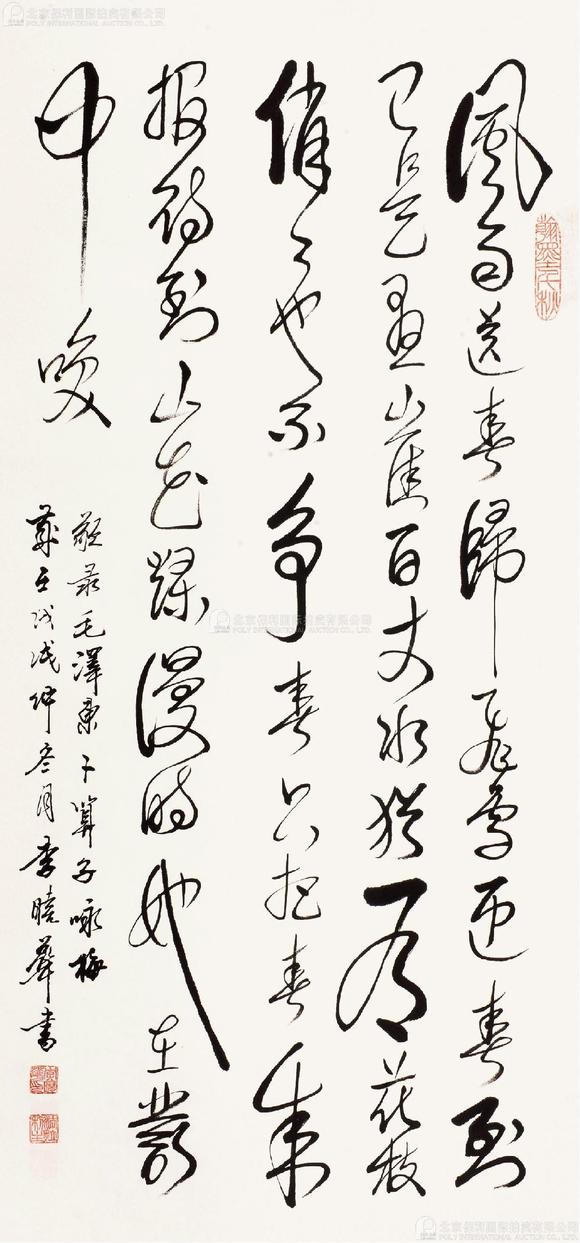 北京保利國際拍賣有限公司
POLY INTERNATIONAL AUCTION CO., LTD.
風雨送春歸飛雪迎春到
已是懸崖百丈冰猶有花枝
俏々也不爭春只把春來
报待到山花爛漫時她在叢
中笑
敬录毛澤東卜算子咏梅
歲在戊戌仲冬月李曉書
北京保利國際拍賣有限公司
POLY INTERNATIONAL AUCTION CO., LTD.
北京保利國際拍賣有限公司
POLY INTERNATIONAL AUCTION CO., LTD.